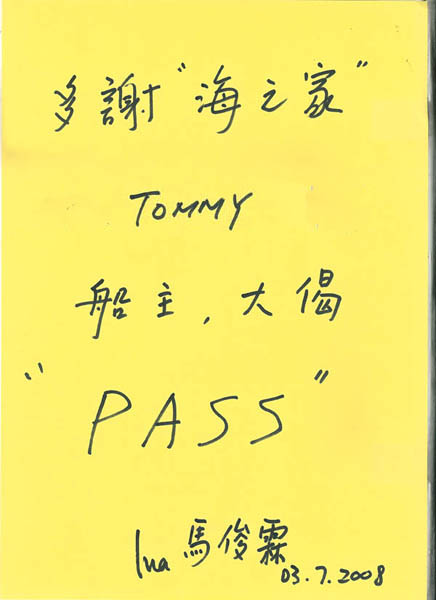 多謝"海之家"
TOMMY
船主,大偈
"PASS"
Iua 馬俊霖
03.7.2008